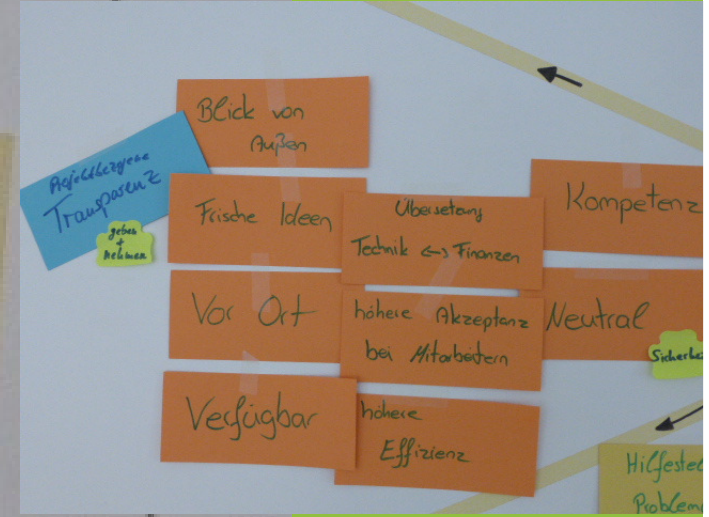 Blick von
Außen
Projektbezogene
Transparenz
geben
+
nehmen
Frische Ideen
Übersetzung
Technik <-> Finanzen
Kompetenz
Vor Ort
höhere Akzeptanz
bei Mitarbeitern
Neutral
Verfügbar
höhere
Effizienz